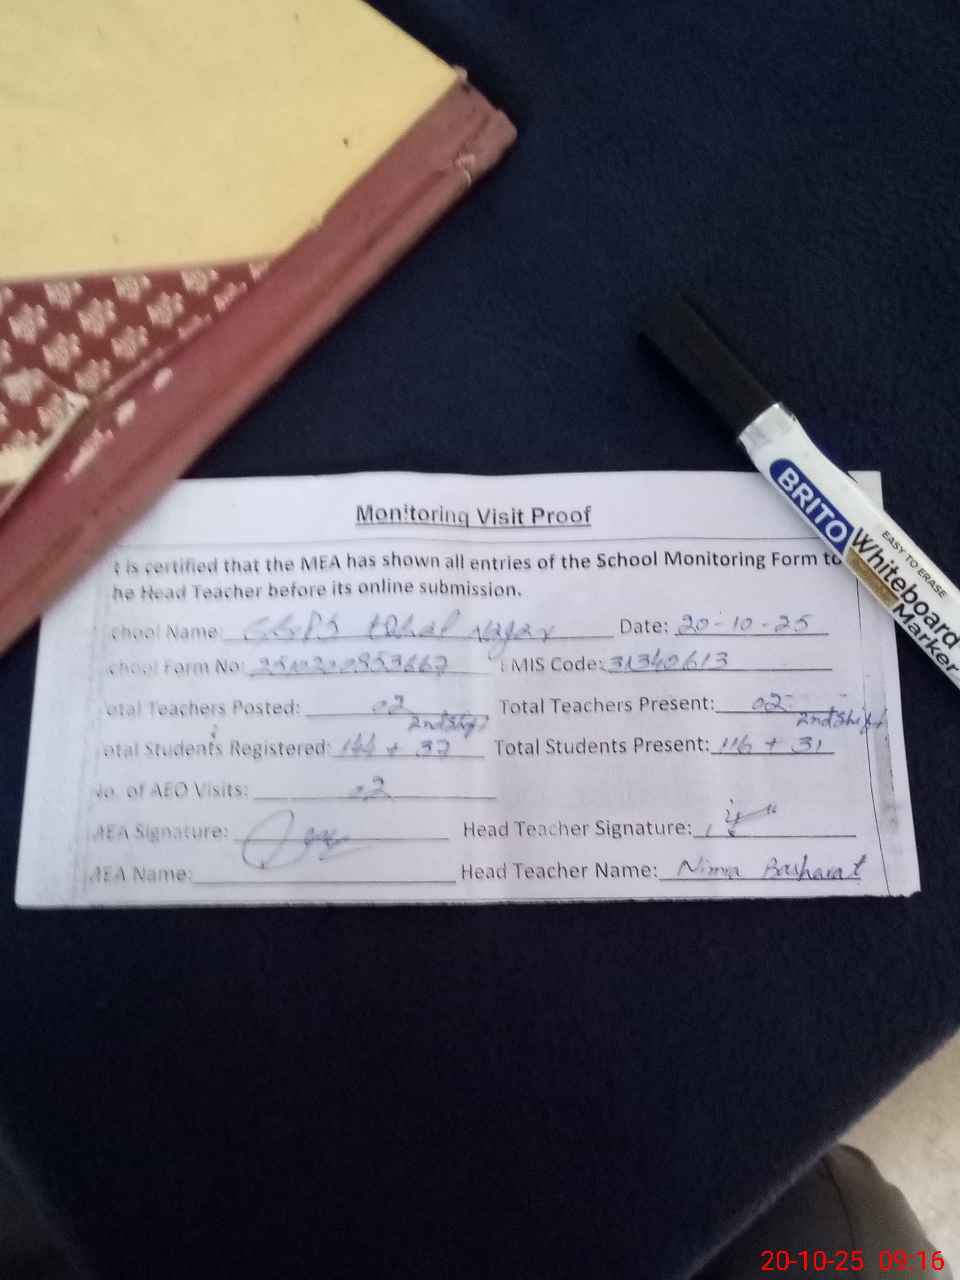 Monitoring Visit Proof
t is certified that the MEA has shown all entries of the School Monitoring Form to
he Head Teacher before its online submission.
chool Name: Iqbal Nagar Date: 20-10-25
chool Form No: EMIS Code: 31340613
otal Teachers Posted: 02 Total Teachers Present: 02
2nd Shift 2nd Shift
otal Students Registered: 144 + 37 Total Students Present: 116 + 31
No. of AEO Visits: 02
AEA Signature: Head Teacher Signature:
AEA Name: Head Teacher Name: Nimra Basharat
BRITO
EASY TO ERASE
Whiteboard
Marker
20-10-25 09:16